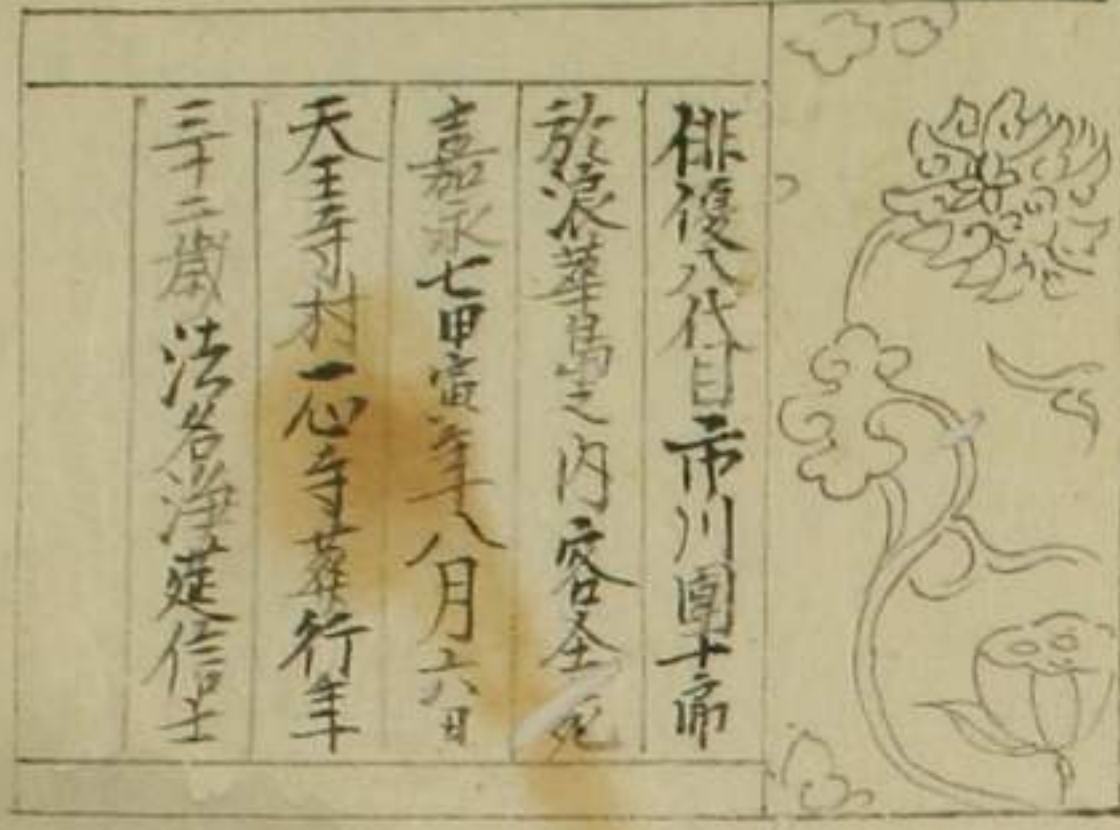 俳優八代目市川團十郎
於浪華嶌之内客全死
嘉永七甲寅年八月六日
天王寺村一心寺葬行年
三十二歳法名浄莚信士